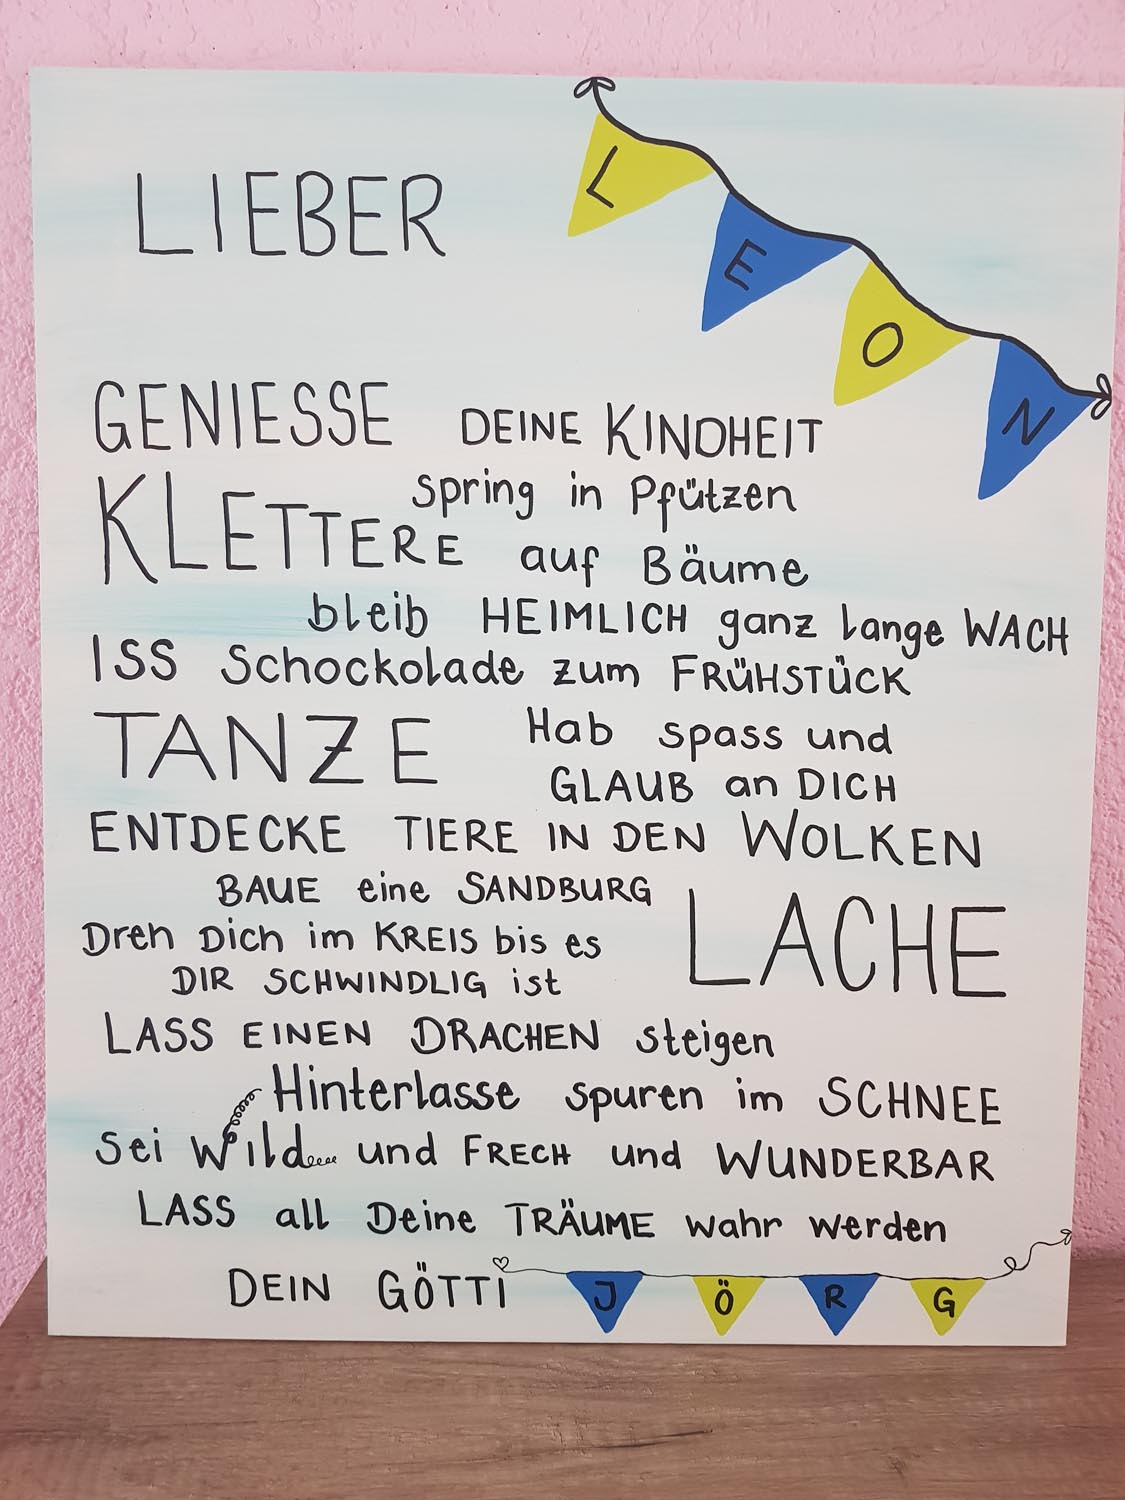 LIEBER LEON
GENIESSE DEINE KINDHEIT
spring in Pfützen
KLETTERE auf Bäume
bleib HEIMLICH ganz lange WACH
ISS Schockolade zum FRÜHSTÜCK
TANZE Hab spass und
GLAUB an DICH
ENTDECKE TIERE IN DEN WOLKEN
BAUE eine SANDBURG
LACHE
Dreh Dich im KREIS bis es
DIR SCHWINDLIG ist
LASS EINEN DRACHEN steigen
Hinterlasse spuren im SCHNEE
Sei Wild und FRECH und WUNDERBAR
LASS all Deine TRÄUME wahr werden
DEIN GÖTTI JÖRG